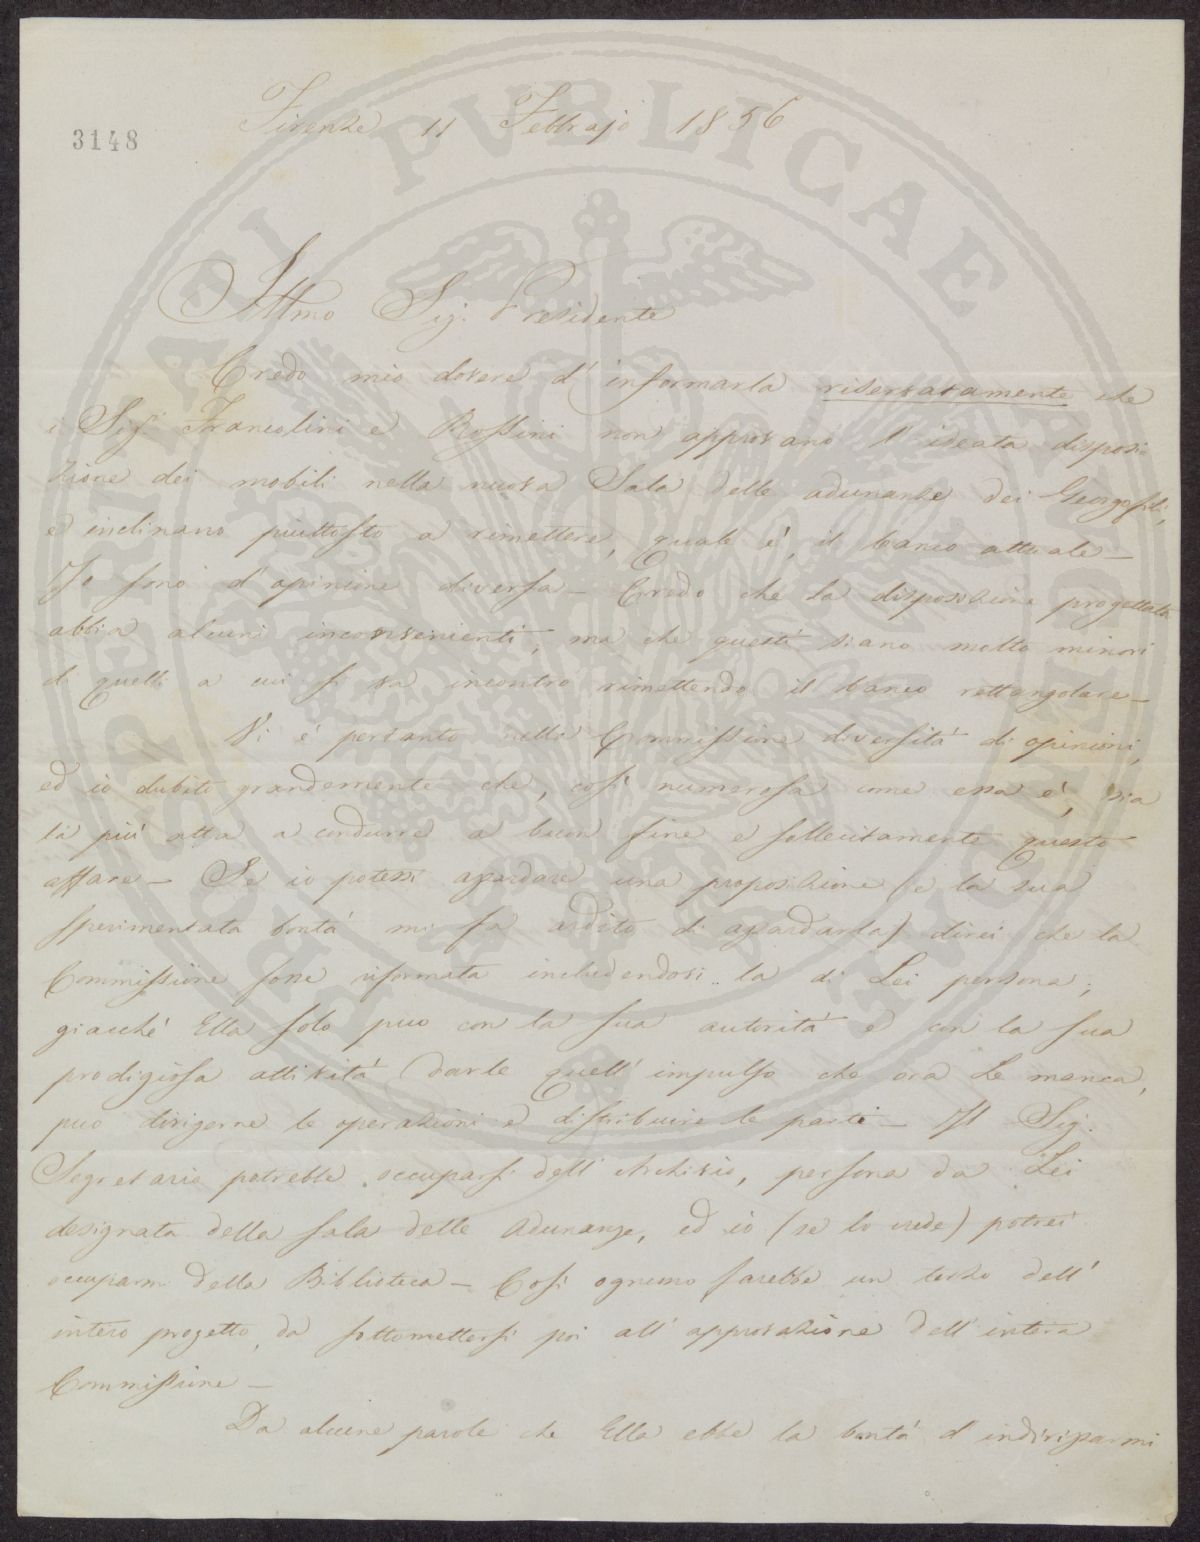 PROSPERITATI PVBLICAE AVGENDAE
3148
Firenze 11 Febbrajo 1856
Illmo Sig. Presidente
Credo mio dovere d'informarla riservatamente che
i Sigri Francolini e Rossini non approvano l'ideata disposi
zione dei mobili nella nuova Sala delle adunanze dei Georgofili,
ed inclinano piuttosto a rimettere, quale è, il banco attuale —
Io sono d'opinione diversa — Credo che la disposizione progettata
abbia alcuni inconvenienti, ma che questi siano molto minori
di quelli a cui si va incontro rimettendo il banco rettangolare —
Vi è pertanto nella Commissione diversità di opinioni,
ed io dubito grandemente che, così numerosa come essa è, sia
la più atta a condurre a buon fine e sollecitamente questo
affare — Se io potessi azzardare una proposizione (e la sua
sperimentata bontà mi fa ardito di azzardarla) direi che la
Commissione fosse riformata includendovi la di Lei persona;
giacchè Ella solo può con la sua autorità e con la sua
prodigiosa attività darle quell'impulso che ora le manca,
può dirigerne le operazioni e distribuire le parti — Il Sig.
Segretario potrebbe occuparsi dell'Archivio, persona da Lei
designata della sala delle Adunanze, ed io (se lo crede) potrei
occuparmi della Biblioteca — Così ognuno farebbe un terzo dell'
intero progetto, da sottomettersi poi all'approvazione dell'intera
Commissione —
Da alcune parole che Ella ebbe la bontà d'indirizzarmi